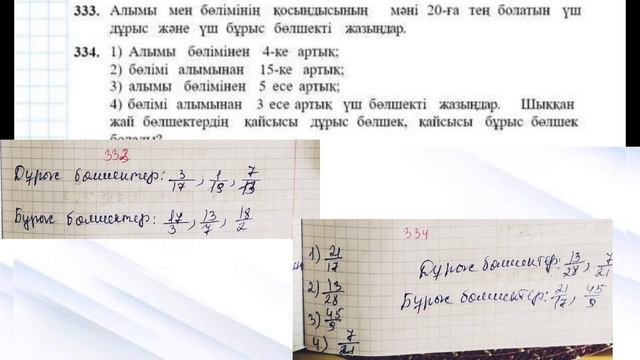 333. Алымы мен бөлімінің қосындысының мәні 20-ға тең болатын үш
дұрыс және үш бұрыс бөлшекті жазыңдар.
334. 1) Алымы бөлімінен 4-ке артық;
2) бөлімі алымынан 15-ке артық;
3) алымы бөлімінен 5 есе артық;
4) бөлімі алымынан 3 есе артық үш бөлшекті жазыңдар. Шыққан
жай бөлшектердің қайсысы дұрыс бөлшек, қайсысы бұрыс бөлшек
болады?
333
Дұрыс бөлшектер: 3/17, 1/19, 7/13
Бұрыс бөлшектер: 17/3, 13/7, 18/2
334
1) 21/17
2) 13/28
3) 45/9
4) 7/21
Дұрыс бөлшектер: 13/28, 7/21
Бұрыс бөлшектер: 21/17, 45/9